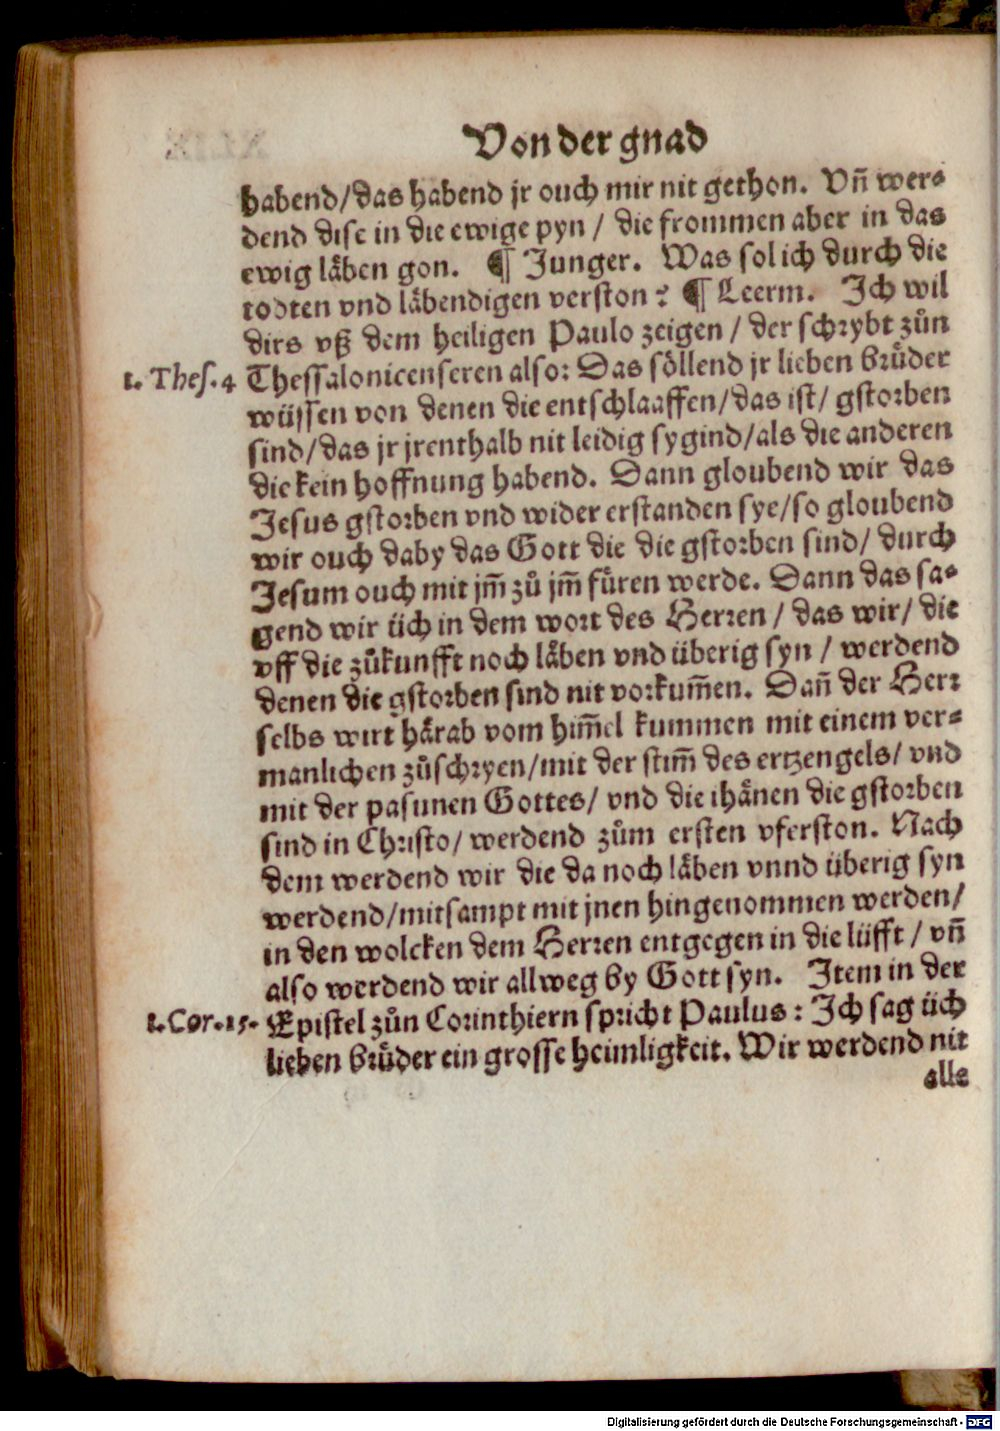 Von der gnad
habend/das habend jr ouch mir nit gethon. Vñ wer⸗
dend dise in die ewige pyn / die frommen aber in das
ewig läben gon. ¶ Junger. Was sol ich durch die
todten vnd läbendigen verston? ¶ Leerm. Ich wil
dirs vß dem heiligen Paulo zeigen / der schrybt zůn
1. Thes. 4 Thessalonicenseren also: Das söllend jr lieben brüder
wüssen von denen die entschlaaffen/das ist/ gstorben
sind/das jr jrenthalb nit leidig sygind/als die anderen
die kein hoffnung habend. Dann gloubend wir das
Jesus gstorben vnd wider erstanden sye/so gloubend
wir ouch daby das Gott die die gstorben sind/ durch
Jesum ouch mit jm̃ zů jm̃ füren werde. Dann das sa⸗
gend wir üch in dem wort des Herren / das wir/ die
vff die zůkunfft noch läben vnd überig syn / werdend
denen die gstorben sind nit vorkum̃en. Dañ der Herr
selbs wirt härab vom him̃el kummen mit einem ver⸗
manlichen zůschryen/mit der stim̃ des ertzengels/ vnd
mit der pasunen Gottes/ vnd die ihänen die gstorben
sind in Christo/ werdend zům ersten vferston. Nach
dem werdend wir die da noch läben vnnd überig syn
werdend/mitsampt mit jnen hingenommen werden/
in den wolcken dem Herren entgegen in die lüfft / vñ
also werdend wir allweg by Gott syn. Item in der
1. Cor. 15. Epistel zůn Corinthiern spricht Paulus: Ich sag üch
lieben brüder ein grosse heimligkeit. Wir werdend nit
alle
Digitalisierung gefördert durch die Deutsche Forschungsgemeinschaft - DFG